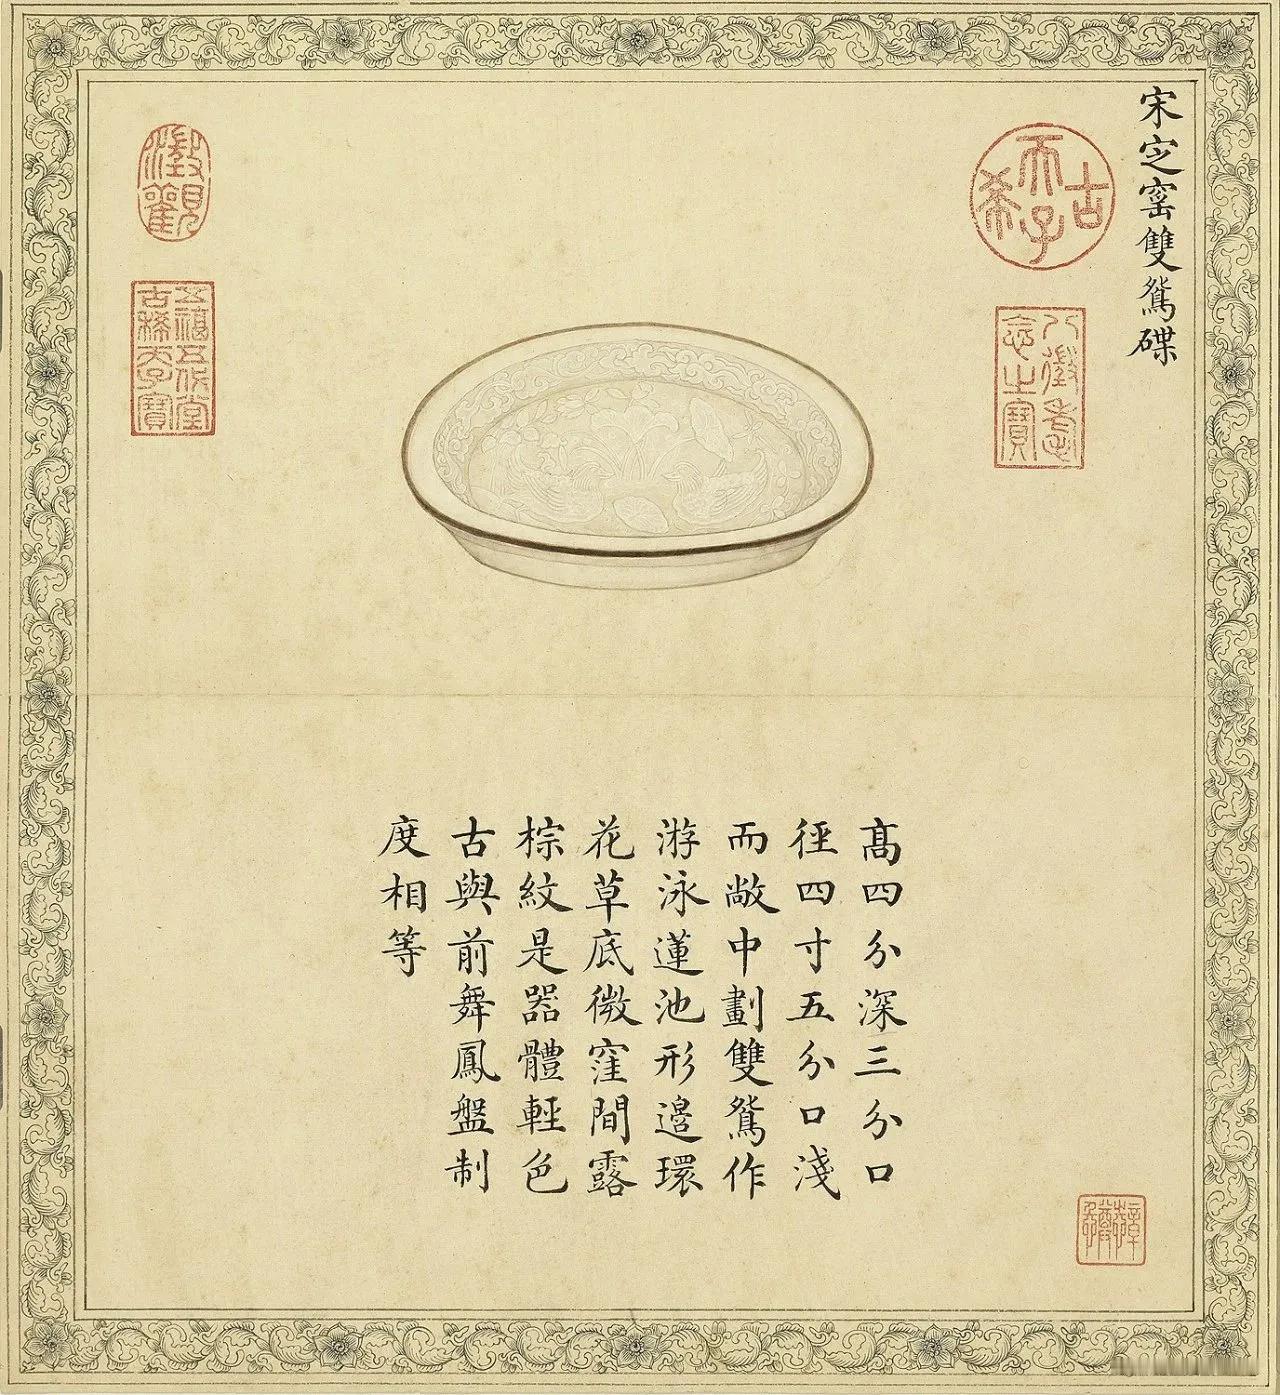 宋定窑雙鴛碟
古希天子
八徵耄念之寶
高四分深三分口
徑四寸五分口淺
而敞中劃雙鴛作
游泳蓮池形邊環
花草底微窪間露
棕紋是器體輕色
古與前舞鳳盤制
度相等
澂觀
五福五代堂古稀天子寶